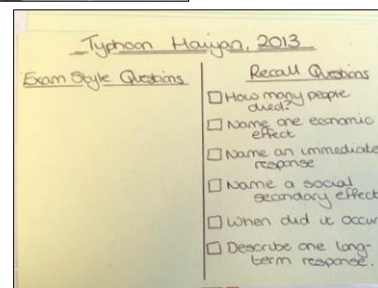 Typhoon Haiyan, 2013
Exam Style Questions
Recall Questions
How many people
died?
Name one economic
effect
Name an immediate
response
Name a social
secondary effect
When did it occur
Describe one long-
term response.